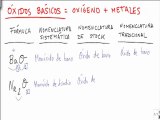 ÓXIDOS BÁSICOS = OXÍGENO + METALES
FÓRMULA NOMENCLATURA SISTEMÁTICA NOMENCLATURA DE STOCK NOMENCLATURA TRADICIONAL
BaO Monóxido de bario Óxido de bario Óxido de bario
Na₂O Monóxido de disodio Óxido de